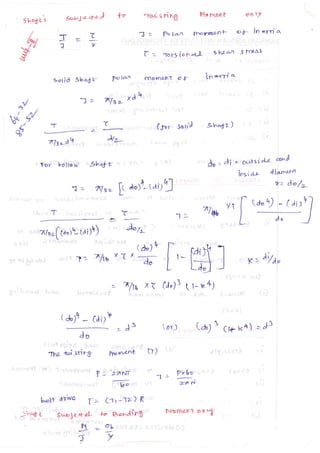 Shafts Subjected to Twisting Moment only
T/J = τ/r
J = Polar moment of Inertia
τ = Torsional shear stress
Solid Shaft Polar moment of Inertia
J = π/32 × d4
T / π/32 d4 = τ / d/2 (for Solid Shaft)
For hollow Shaft do = di = outside and Inside diameter
J = π/32 [(do)4 - (di)4] r = do/2
T / π/32 [(do)4 - (di)4] = τ / do/2
T = π/16 × τ [(do4) - (di)4 / do]
T = π/16 × τ × (do)4 / do [1 - (di/do)4] K = di/do
= π/16 × τ (do)3 (1 - k4)
(do)4 - (di)4 / do = d3 (or) (do)3 (1- k4) = d3
The twisting moment (T)
P = 2πNT / 60 T = P×60 / 2πN
belt drive T = (T1 - T2) R
Shaft Subjected to Bending Moment only
M/I = σb/y